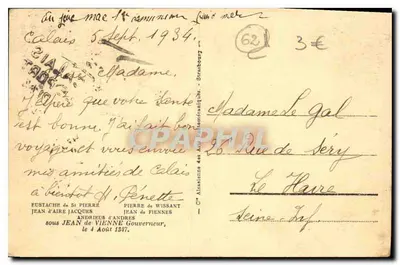 Calais 5 Sept. 1934
Madame.
J'espère que votre santé
est bonne. J'ai fait bon
voyage et vous envoie
mes amitiés de Calais
à bientôt H. Pénette
EUSTACHE de St PIERRE PIERRE de WISSANT
JEAN D'AIRE JACQUES JEAN de FIENNES
ANDRIEUX D'ANDRES
sous JEAN de VIENNE Gouverneur,
le 4 Août 1347.
Cie Alsacienne des Arts Photomécaniques - Strasbourg
62
3€
Madame Le Gal
26 Rue de Séry
Le Havre
Seine-Inf.